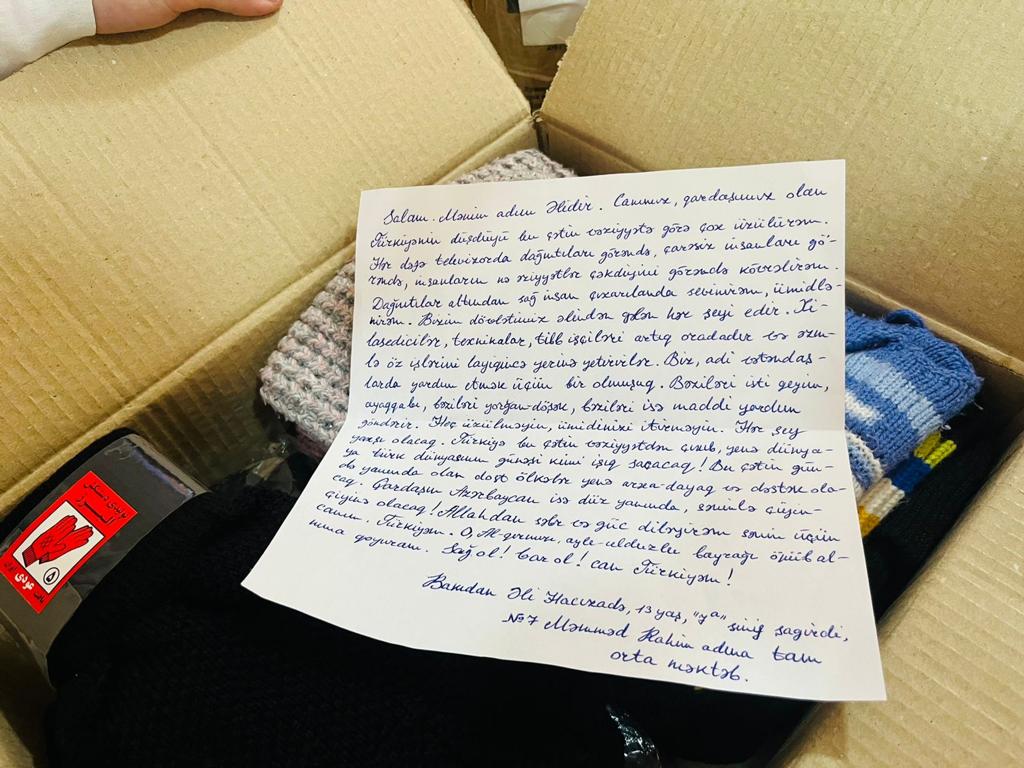 Salam. Mənim adım Əlidir. Canımız, qardaşımız olan
Türkiyənin düşdüyü bu çətin vəziyyətə görə çox üzülürəm.
Hər dəfə televizorda dağıntıları görəndə, çarəsiz insanları gö-
rəndə, insanların nə əziyyətlər çəkdiyini görəndə kövrəlirəm.
Dağıntılar altından sağ insan çıxarılanda sevinirəm, ümidlə-
nirəm. Bizim dövlətimiz əlindən gələn hər şeyi edir. Xi-
lasedicilər, texnikalar, tibb işçiləri artıq oradadır və əzm-
lə öz işlərini layiqincə yerinə yetirirlər. Biz, adi vətəndaş-
larda yardım etmək üçün bir olmuşuq. Bəziləri isti geyim,
ayaqqabı, bəziləri yorğan-döşək, bəziləri isə maddi yardım
göndərir. Heç üzülməyin, ümidinizi itirməyin. Hər şey
yaxşı olacaq. Türkiyə bu çətin vəziyyətdən çıxıb, yenə dünya-
ya türk dünyasının günəşi kimi işıq saçacaq! Bu çətin gün-
də yanında olan dost ölkələr yenə arxa-dayaq və dəstək ola-
caq. Qardaşın Azərbaycan isə düz yanında, səninlə çiyin-
çiyinə olacaq! Allahdan səbr və güc diləyirəm sənin üçün
canım Türkiyəm. O, Al-qırmızı, aylı-ulduzlu bayrağı öpüb al-
nıma qoyuram. Sağ ol! Var ol! can Türkiyəm!
Bakıdan Əli Hacızadə, 13 yaş, "7a" sinif şagirdi,
№7 Məmməd Rahim adına tam
orta məktəb.
تولیدی دستکش
البرز
بافت عودی